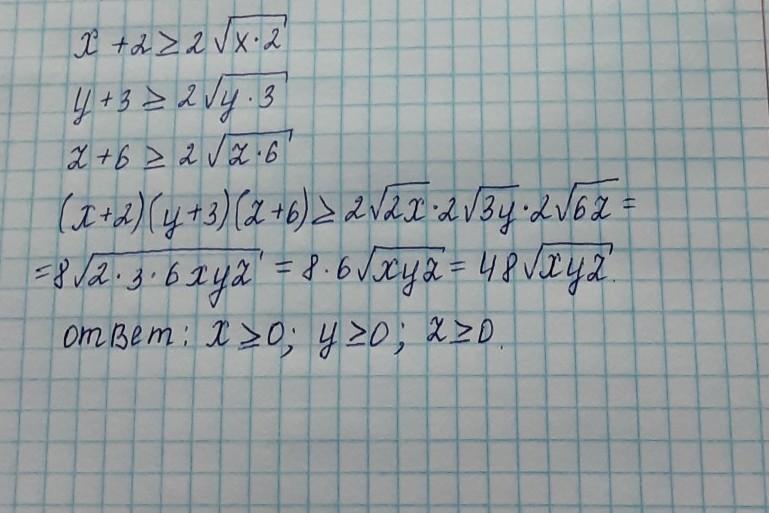 x + 2 ≥ 2 √x·2
y + 3 ≥ 2 √y·3
z + 6 ≥ 2 √z·6
(x+2)(y+3)(z+6) ≥ 2√2x · 2√3y · 2√6z =
= 8√2·3·6xyz = 8·6√xyz = 48√xyz.
ответ: x ≥ 0; y ≥ 0; z ≥ 0.